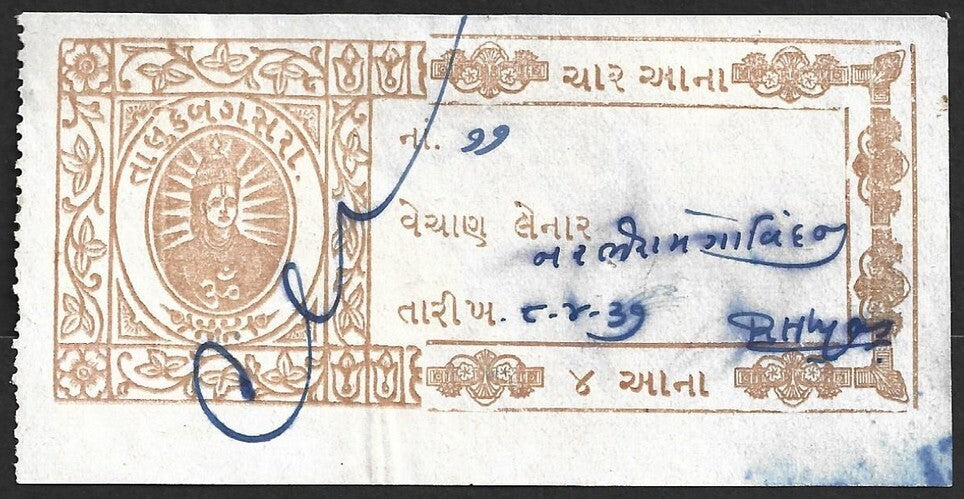 તાલુકે બગસરા.
ૐ
ચાર આના
નાં. ૧૧
વેચાણ લેનાર
નરભેરામ ગોવિંદજી
તારીખ. ૮-૪-૩૭
૪ આના